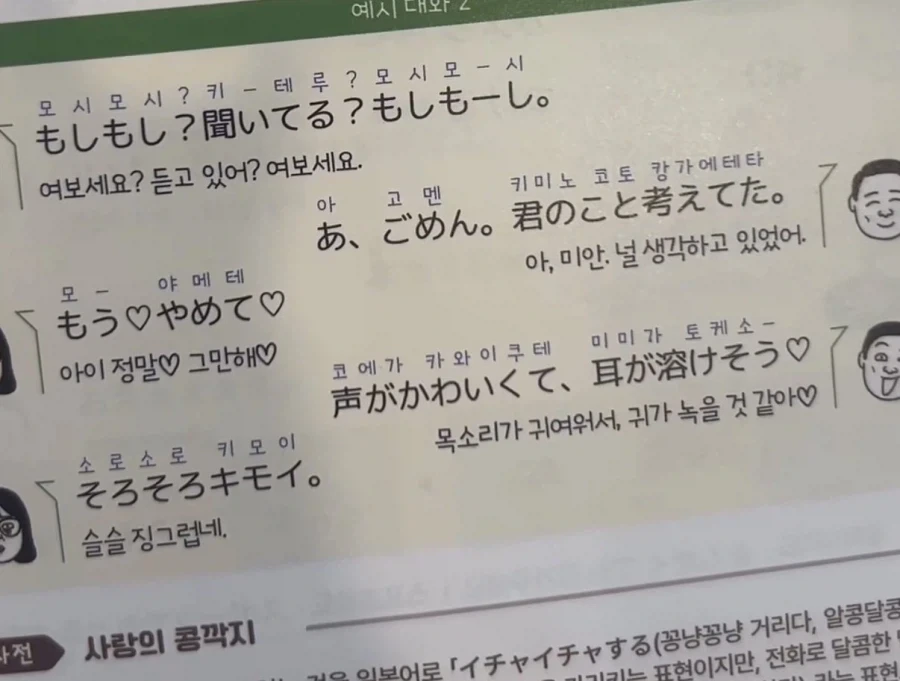 예시 대화 2
모 시 모 시 ? 키 – 테 루 ? 모 시 모 – 시
もしもし？聞いてる？もしもーし。
여보세요? 듣고 있어? 여보세요.
아 고 멘 키미노 코토 캉가에테타
あ、ごめん。君のこと考えてた。
아, 미안. 널 생각하고 있었어.
모 – 야 메 테
もう♡やめて♡
아이 정말♡ 그만해♡
코에가 카와이쿠테 미미가 토케소–
声がかわいくて、耳が溶けそう♡
목소리가 귀여워서, 귀가 녹을 것 같아♡
소로소로 키모이
そろそろキモイ。
슬슬 징그럽네.
사전 사랑의 콩깍지
것을 일본어로 「イチャイチャする(꽁냥꽁냥 거리다, 알콩달콩
표현이지만, 전화로 달콤한
라는 표현